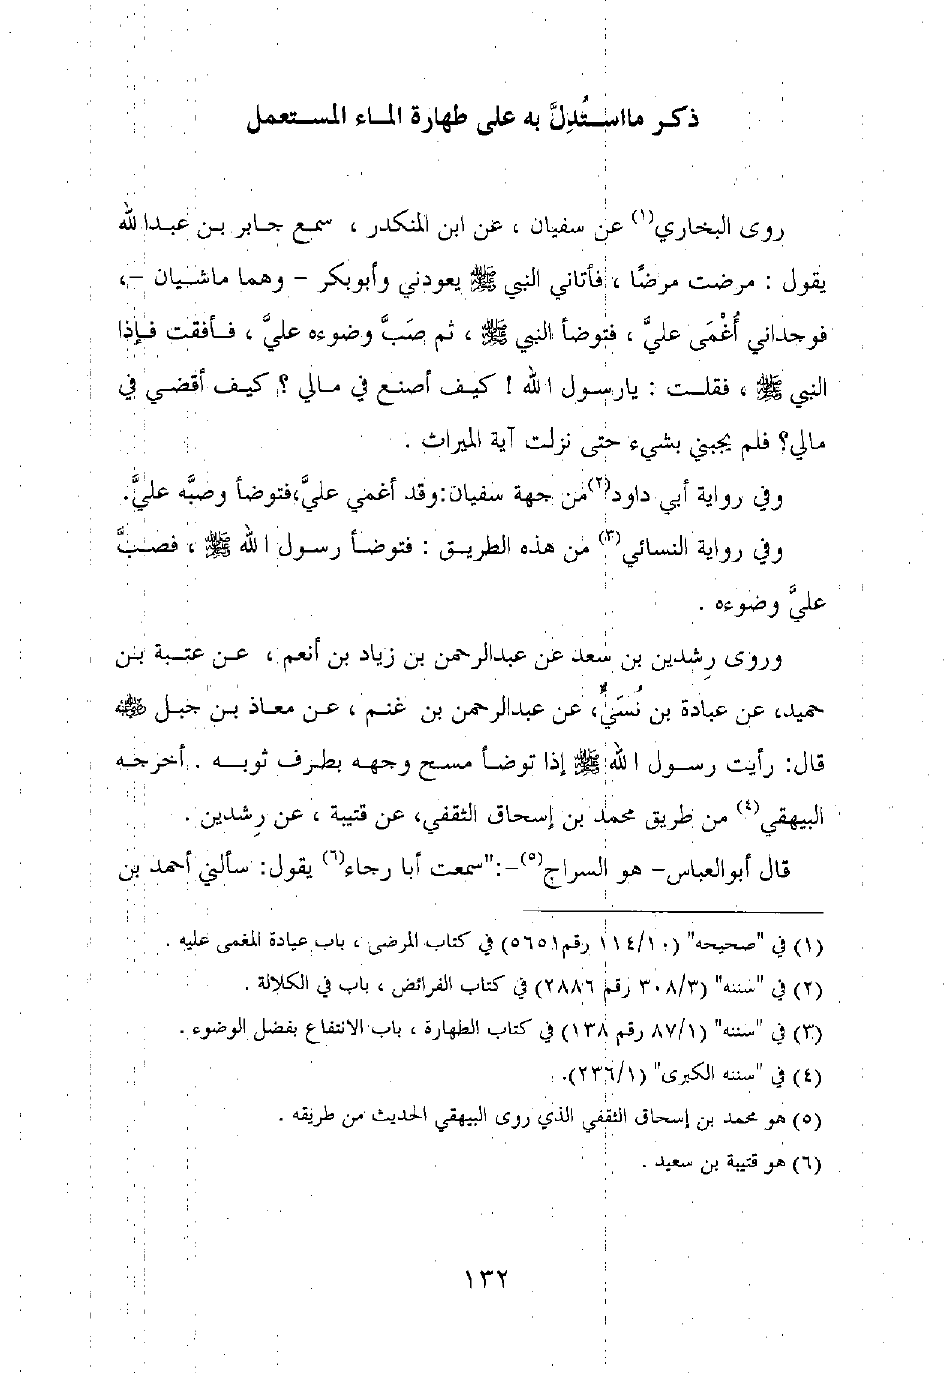 ذكر مااستُدِلَّ به على طهارة الماء المستعمل
روى البخاري(١) عن سفيان ، عن ابن المنكدر ، سمع جابر بن عبدالله
يقول : مرضت مرضًا ، فأتاني النبي ﷺ يعودني وأبوبكر – وهما ماشيان –،
فوجداني أُغْمَى عليَّ ، فتوضأ النبي ﷺ ، ثم صَبَّ وضوءه عليَّ ، فأفقت فإذا
النبي ﷺ ، فقلت : يارسول الله ! كيف أصنع في مالي ؟ كيف أقضي في
مالي؟ فلم يجبني بشيء حتى نزلت آية الميراث .
وفي رواية أبي داود(٢) من جهة سفيان:وقد أغمي عليَّ،فتوضأ وصبَّه عليَّ.
وفي رواية النسائي(٣) من هذه الطريق : فتوضأ رسول الله ﷺ ، فصبَّ
عليَّ وضوءه .
وروى رِشدين بن سعد عن عبدالرحمن بن زياد بن أنعم ، عن عتبة بن
حميد، عن عبادة بن نُسَيٍّ، عن عبدالرحمن بن غنم ، عن معاذ بن جبل رضي الله عنه
قال: رأيت رسول الله ﷺ إذا توضأ مسح وجهه بطرف ثوبه . أخرجه
البيهقي(٤) من طريق محمد بن إسحاق الثقفي، عن قتيبة ، عن رِشدين .
قال أبوالعباس– هو السراج(٥)–:"سمعت أبا رجاء(٦) يقول: سألني أحمد بن
(١) في "صحيحه" (١١٤/١٠ رقم٥٦٥١) في كتاب المرضى ، باب عيادة المغمى عليه .
(٢) في "سننه" (٣٠٨/٣ رقم ٢٨٨٦) في كتاب الفرائض ، باب في الكلالة .
(٣) في "سننه" (٨٧/١ رقم ١٣٨) في كتاب الطهارة ، باب الانتفاع بفضل الوضوء .
(٤) في "سننه الكبرى" (٢٣٦/١).
(٥) هو محمد بن إسحاق الثقفي الذي روى البيهقي الحديث من طريقه .
(٦) هو قتيبة بن سعيد .
١٣٢